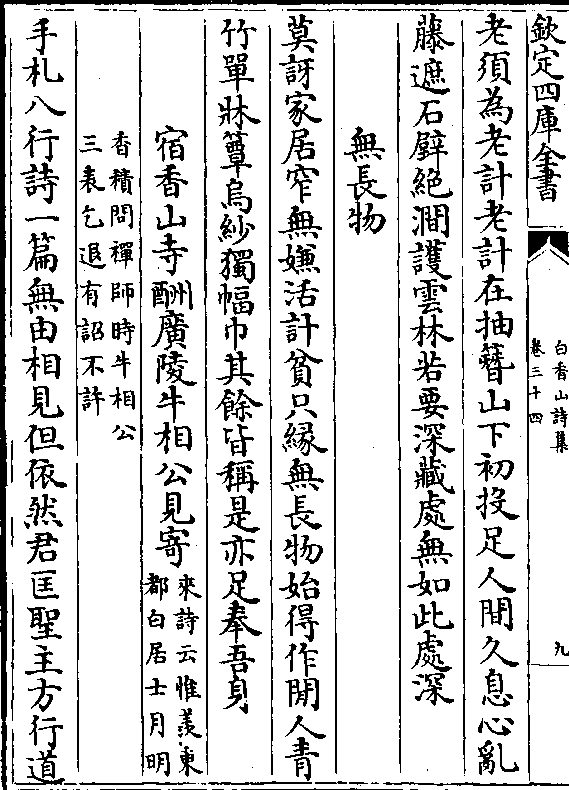 欽定四庫全書
白香山詩集
卷三十四
九
老須為老計老計在抽簪山下初投足人間久息心亂
藤遮石壁絕澗護雲林若要深藏處無如此處深
無長物
莫訝家居窄無嫌活計貧只緣無長物始得作閒人青
竹單牀簟烏紗獨幅巾其餘皆稱是亦足奉吾身
宿香山寺酬廣陵牛相公見寄
來詩云惟羨東
都白居士月明
香積問禪師時牛相公
三表乞退有詔不許
手札八行詩一篇無由相見但依然君匡聖主方行道